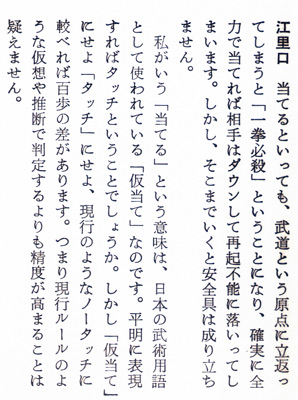 江里口　当てるといっても、武道という原点に立返っ
てしまうと「一拳必殺」ということになり、確実に全
力で当てれば相手はダウンして再起不能に落いってし
まいます。しかし、そこまでいくと安全具は成り立ち
ません。
　私がいう「当てる」という意味は、日本の武術用語
として使われている「仮当て」なのです。平明に表現
すればタッチということでしょうか。しかし「仮当て」
にせよ「タッチ」にせよ、現行のようなノータッチに
較べれば百歩の差があります。つまり現行ルールのよ
うな仮想や推断で判定するよりも精度が高まることは
疑えません。